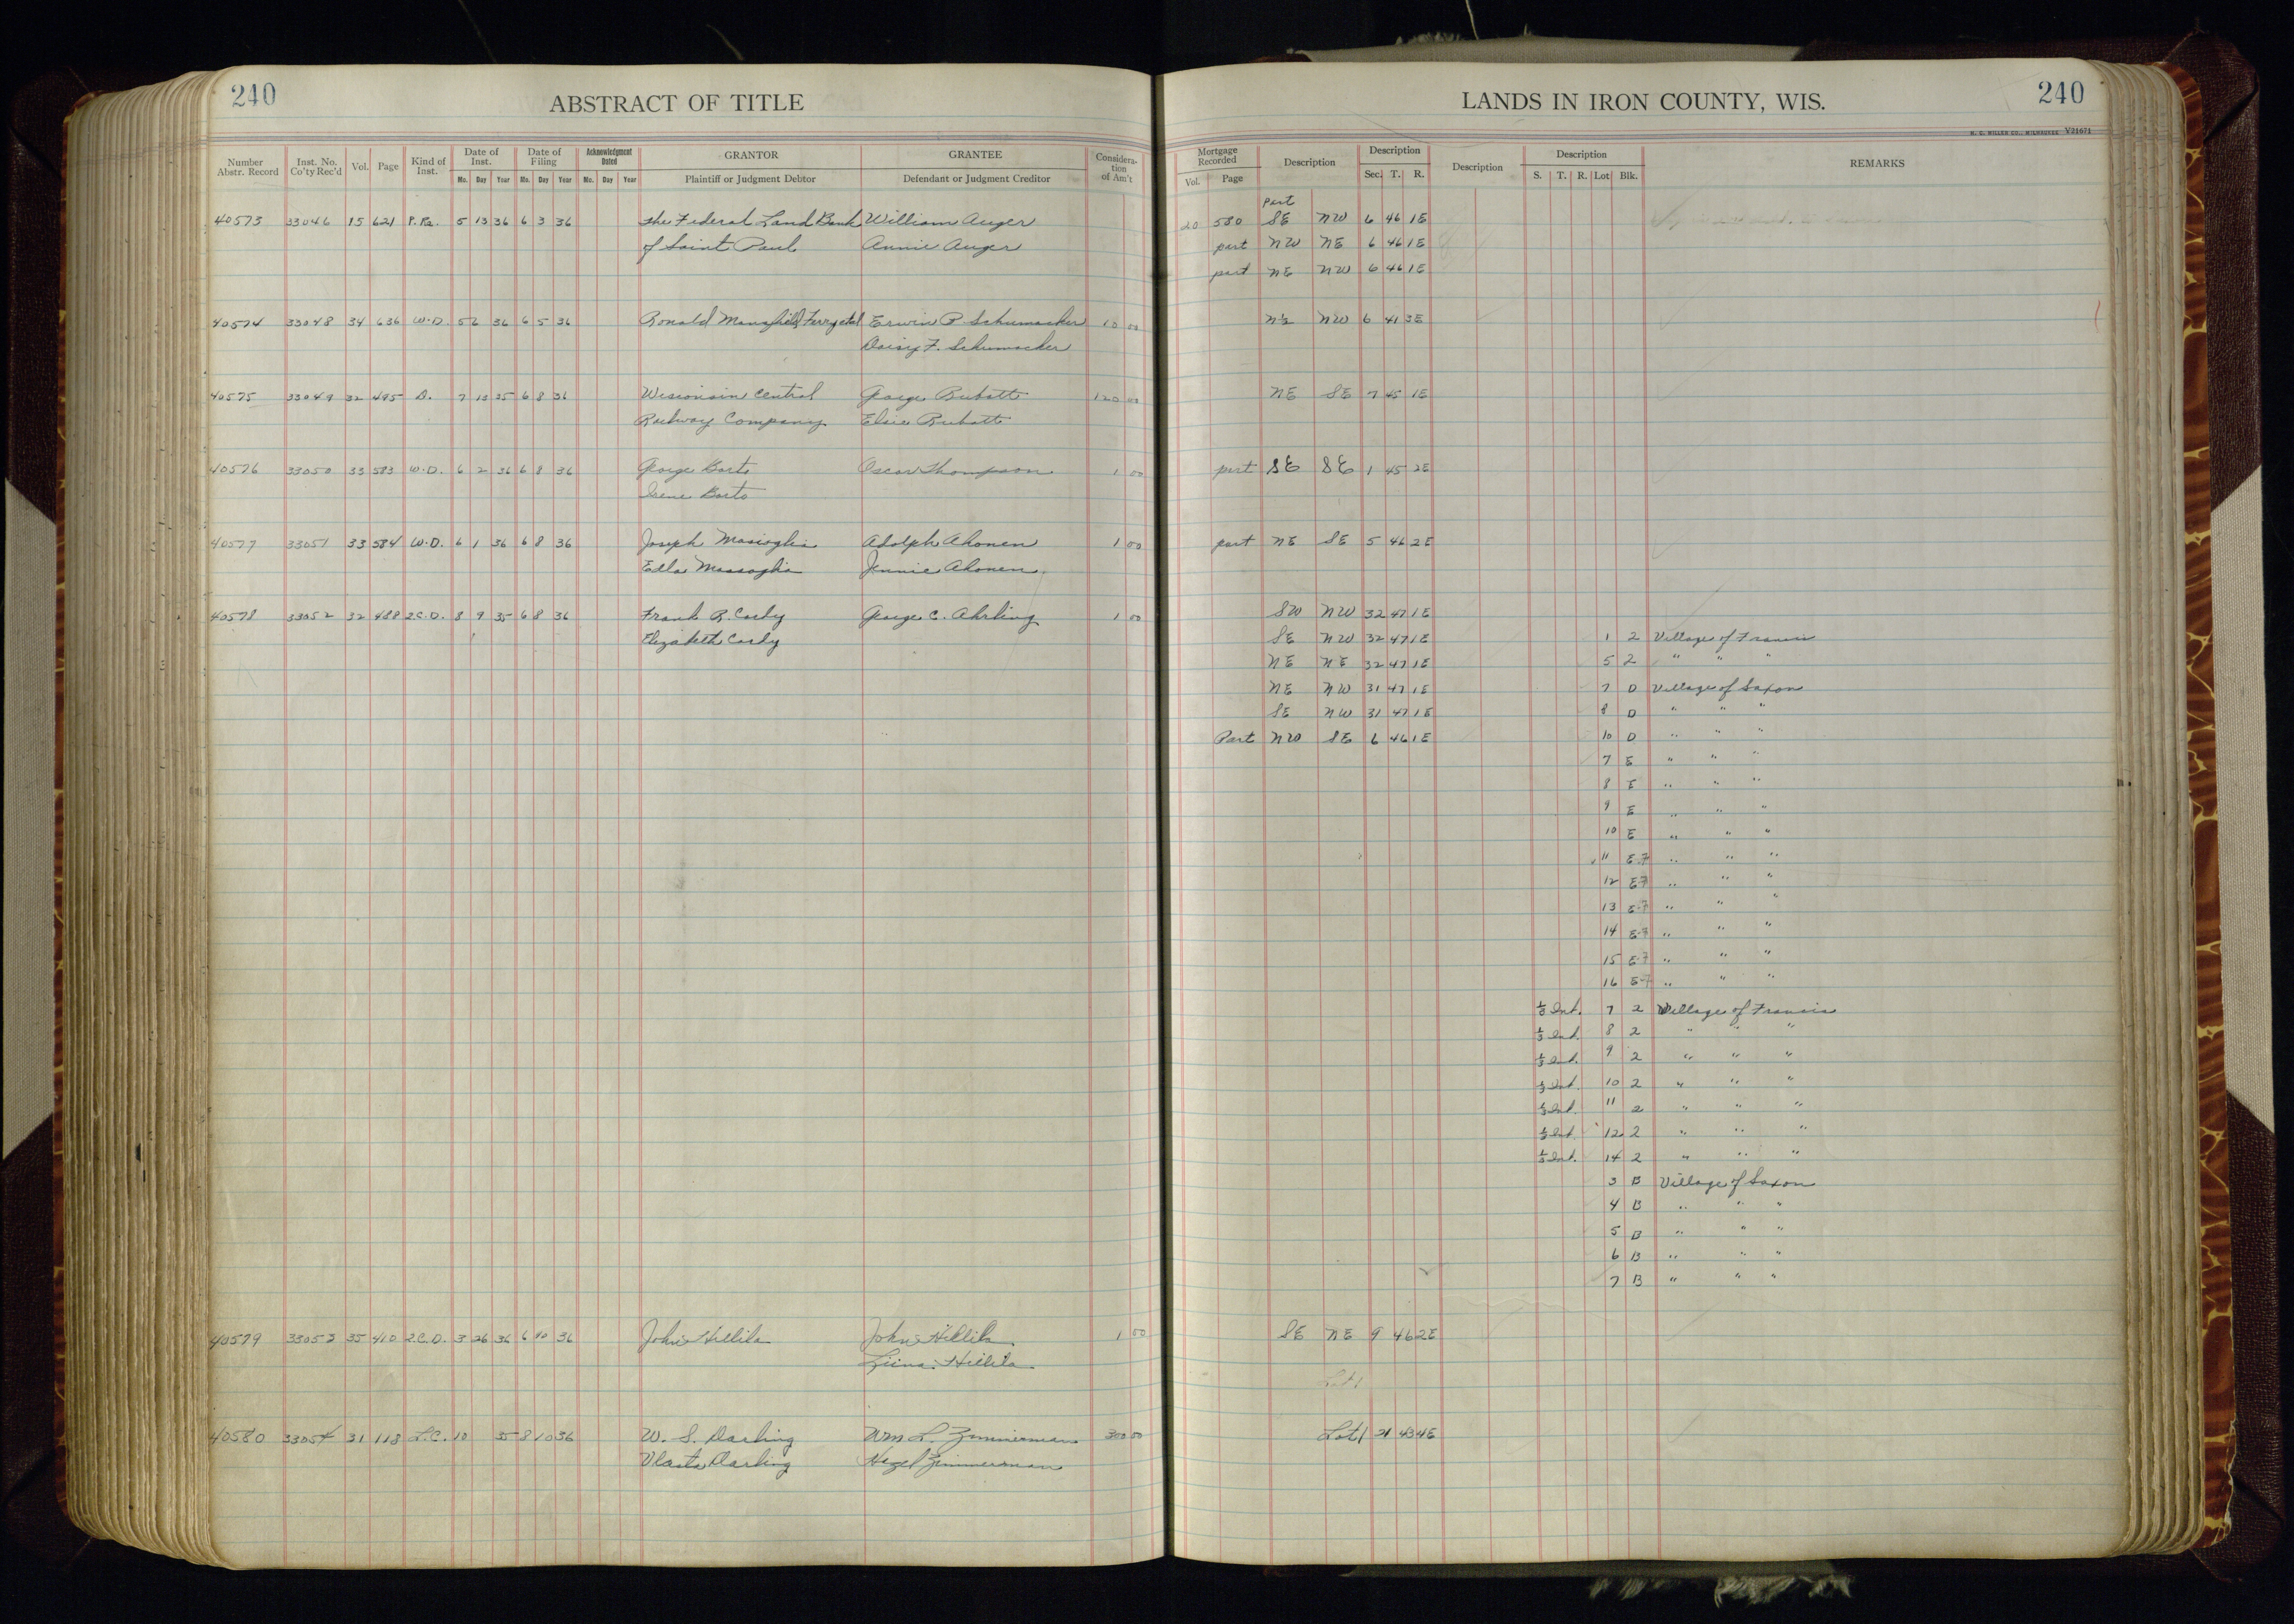 240 ABSTRACT OF TITLE LANDS IN IRON COUNTY, WIS. 240
H. C. MILLER CO., MILWAUKEE V21671
Number Abstr. Record Inst. No. Co'ty Rec'd Vol. Page Kind of Inst. Date of Inst. Date of Filing Acknowledgment Dated GRANTOR GRANTEE Considera- tion of Am't Mortgage Recorded Description Description Description Description REMARKS
Mo. Day Year Mo. Day Year Mo. Day Year Plaintiff or Judgment Debtor Defendant or Judgment Creditor Vol. Page Sec. T. R. S. T. R. Lot Blk.
part
40573 33046 15 621 P.Re. 5 13 36 6 3 36 The Federal Land Bank William Auger 20 580 SE NW 6 46 1E
of Saint Paul Annie Auger part NW NE 6 46 1E
part NE NW 6 46 1E
40574 33048 34 636 W.D. 5 2 36 6 5 36 Ronald Mansfield Ferry etal Erwin P. Schumacher 10 00 N½ NW 6 41 3E
Daisy F. Schumacher
40575 33049 32 495 D. 7 13 35 6 8 36 Wisconsin Central George 120 00 NE SE 7 45 1E
Railway Company Elsie
40576 33050 33 583 W.D. 6 2 36 6 8 36 George Barto Oscar Thompson 1 00 part SE SE 1 45 2E
Irene Barto
40577 33051 33 584 W.D. 6 1 36 6 8 36 Joseph Adolph Ahonen 1 00 part NE SE 5 46 2E
Edla Jennie Ahonen
40578 33052 32 488 2.C.D. 8 9 35 6 8 36 Frank R. Corby George C. Ahrling 1 00 SW NW 32 47 1E
Elizabeth Corby SE NW 32 47 1E 1 2 Village of Francis
NE NE 32 47 1E 5 2 " " "
NE NW 31 47 1E 7 D Village of Saxon
SE NW 31 47 1E 8 D " " "
Part NW SE 6 46 1E 10 D " " "
7 E " " "
8 E " " "
9 E " " "
10 E " " "
11 E-7 " " "
12 E-7 " " "
13 E-7 " " "
14 E-7 " " "
15 E-7 " " "
16 E-7 " " "
⅓ Int. 7 2 Village of Francis
⅓ Int. 8 2 " " "
⅓ Int. 9 2 " " "
⅓ Int. 10 2 " " "
⅓ Int. 11 2 " " "
⅓ Int. 12 2 " " "
⅓ Int. 14 2 " " "
3 B Village of Saxon
4 B " " "
5 B " " "
6 B " " "
7 B " " "
40579 33053 35 410 2.C.D. 3 26 36 6 10 36 John Hillila John Hillila 1 00 SE NE 9 46 2E
Liina Hillila
Lot 1
40580 33054 31 118 L.C. 10 35 8 10 36 W. S. Darling Wm L. Zimmerman 300 00 Lot 1 21 43 4E
Vlasta Darling Hazel Zimmerman